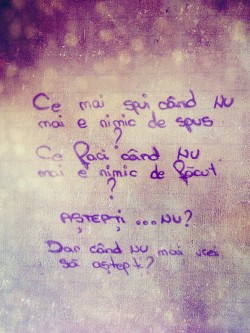 Ce mai spui când NU
mai e nimic de spus
?
Ce faci când NU
mai e nimic de făcut
?
AȘTEPȚI ... NU?
Dar când NU mai vrei
să aștept?